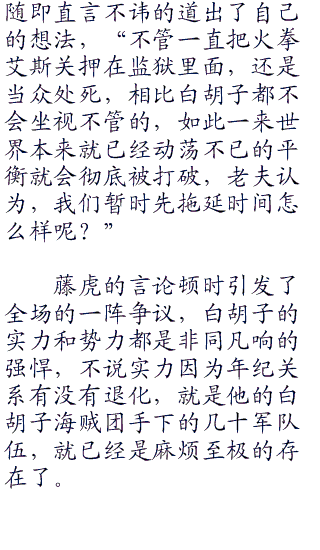 随即直言不讳的道出了自己
的想法，“不管一直把火拳
艾斯关押在监狱里面，还是
当众处死，相比白胡子都不
会坐视不管的，如此一来世
界本来就已经动荡不已的平
衡就会彻底被打破，老夫认
为，我们暂时先拖延时间怎
么样呢？”
藤虎的言论顿时引发了
全场的一阵争议，白胡子的
实力和势力都是非同凡响的
强悍，不说实力因为年纪关
系有没有退化，就是他的白
胡子海贼团手下的几十军队
伍，就已经是麻烦至极的存
在了。